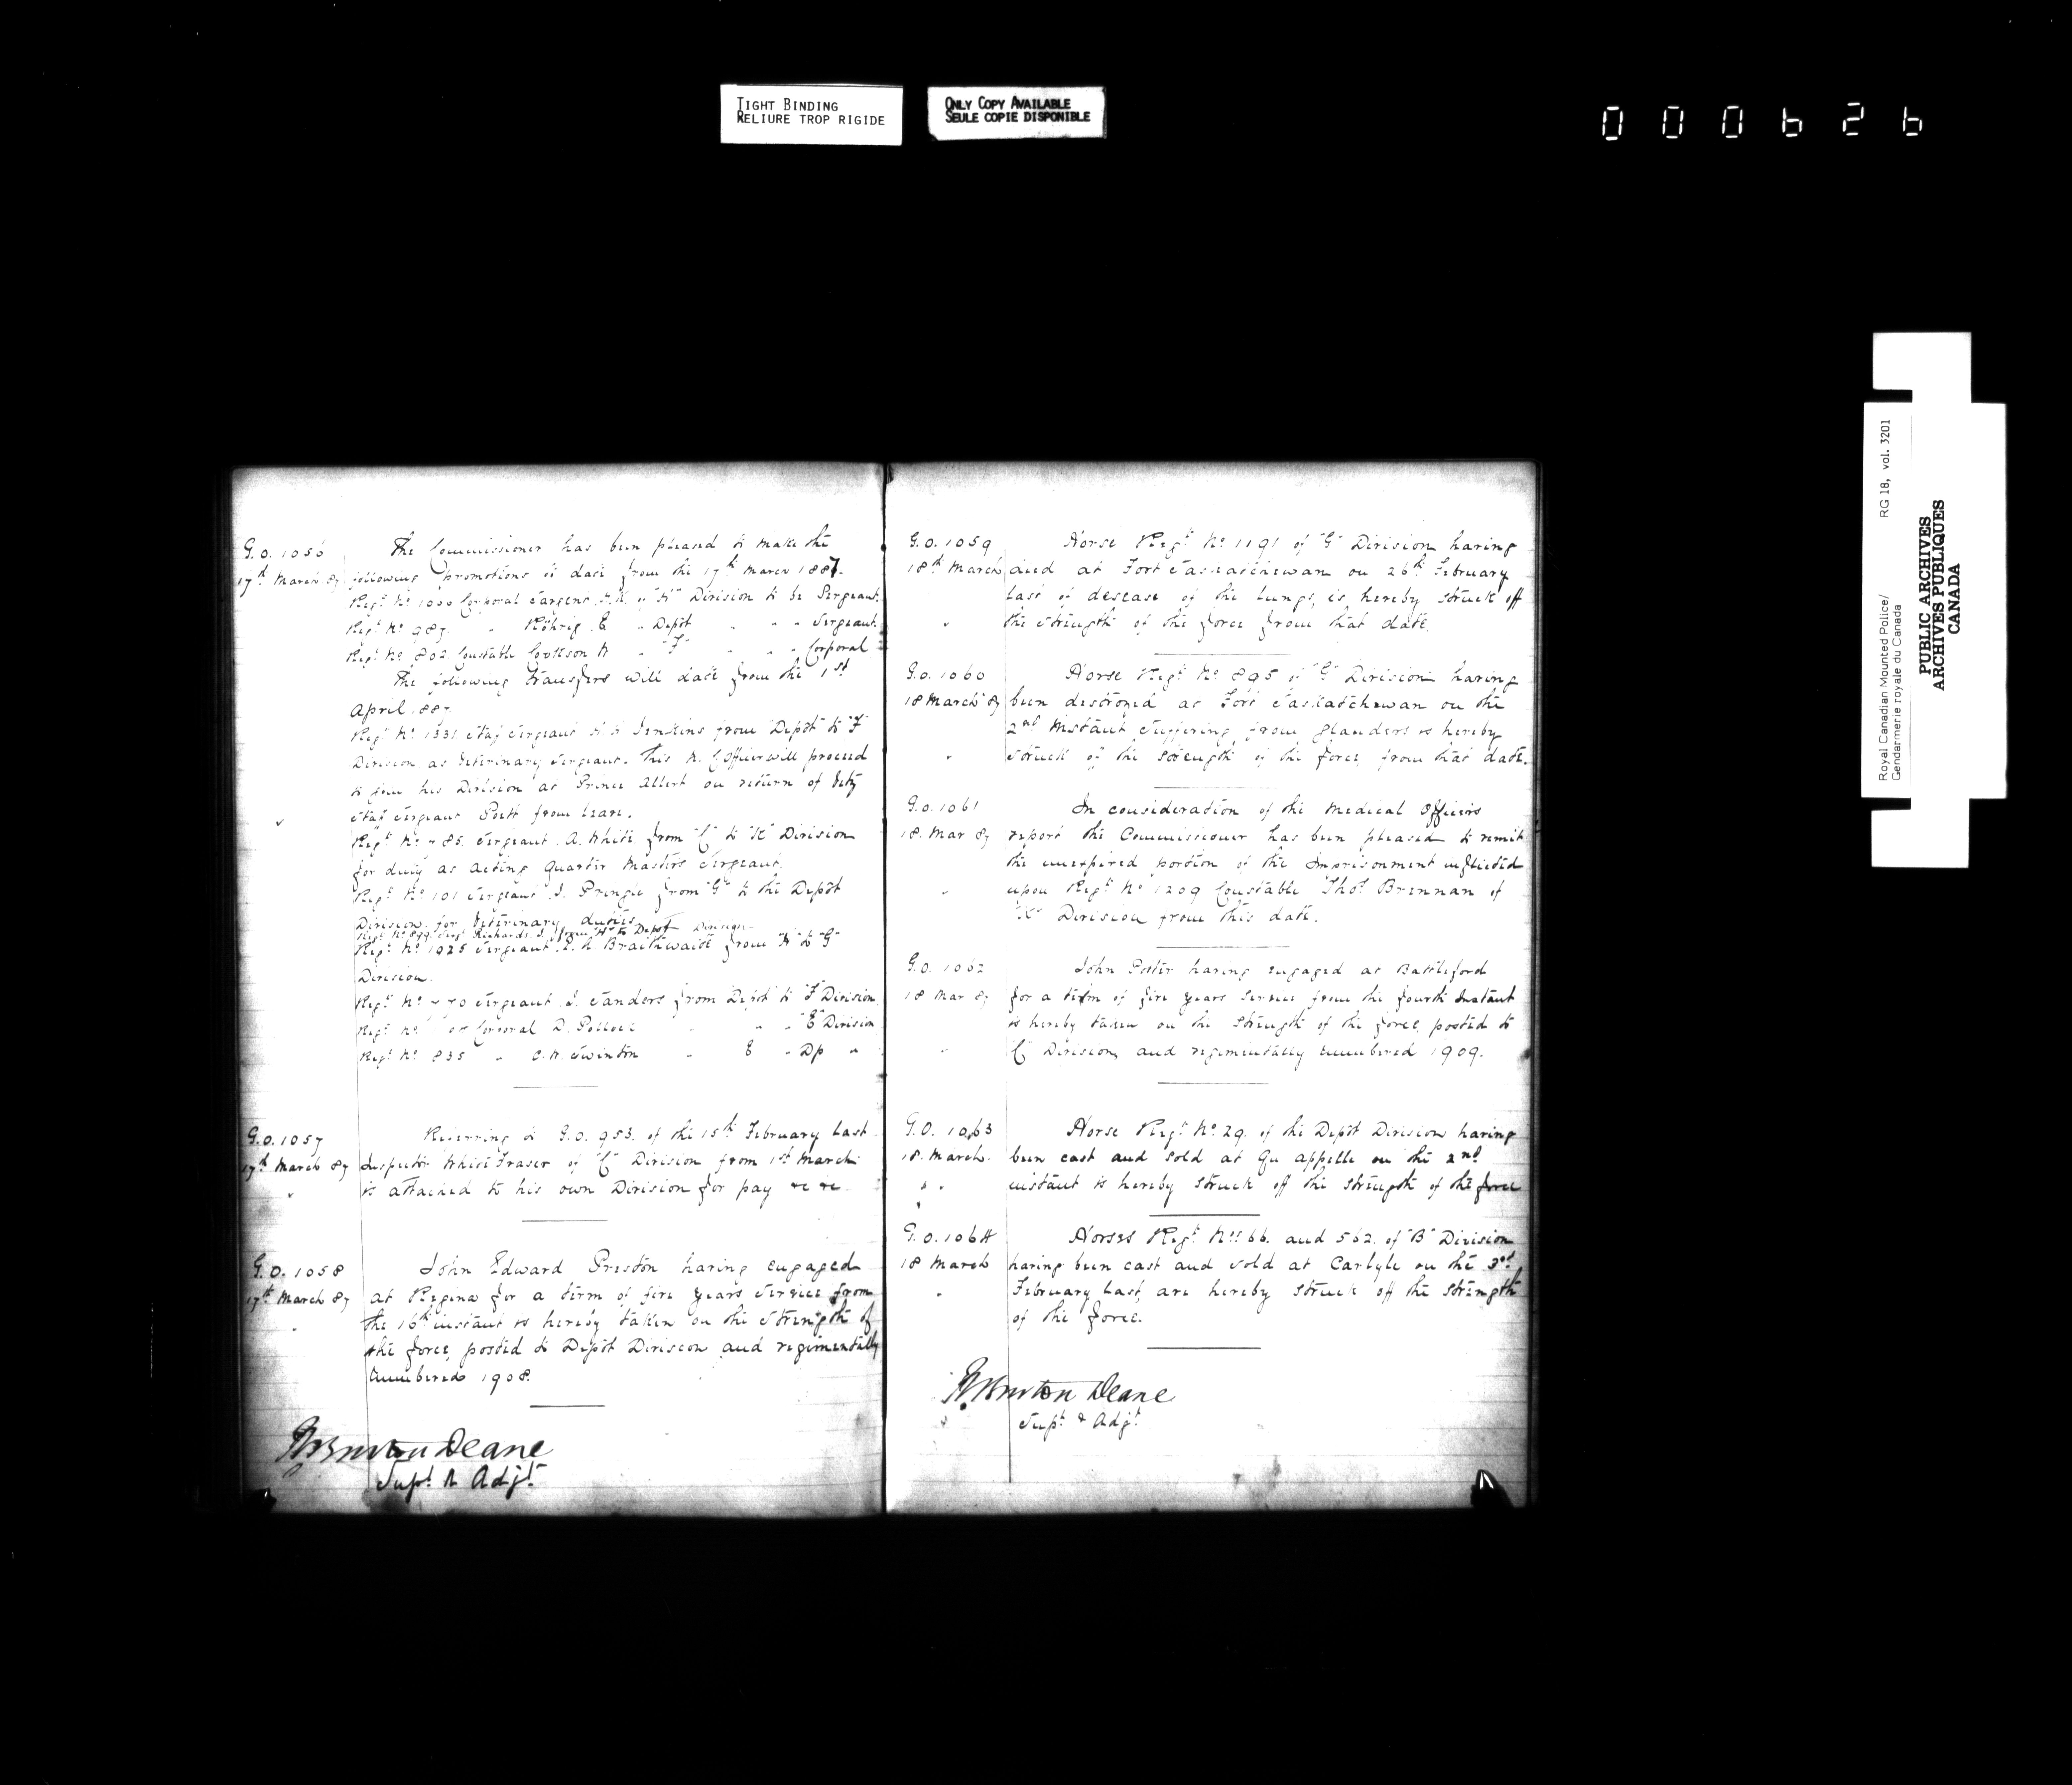 TIGHT BINDING
RELIURE TROP RIGIDE
ONLY COPY AVAILABLE
SEULE COPIE DISPONIBLE
000626
G.O. 1056
17th March 87
The Commissioner has been pleased to make the
following promotions to date from the 17th March 1887.
Regt No 1000 Corporal J.H. of "K" Division to be Sergeant.
Regt No 987 " Röhrig E " Depôt " " " Sergeant.
Regt No 802 Constable Cookson W " "F" " " " Corporal
The following transfers will date from the 1st
April 887
Regt No 1331 Staff Sergeant Jenkins from Depôt to "F"
Division as Veterinary Sergeant. This N. C. Officer will proceed
to join his Division at Prince Albert on return of Vety
Staff Sergeant Pott from leave.
Regt No 785 Sergeant A. White from "C" to "K" Division
for duty as Acting Quarter Masters Sergeant.
Regt No 101 Sergeant J. Pringle from "G" to the Depôt
Division for Veterinary duties
Regt No 899 Sergt Richards J. from "H" to Depot Division
Regt No 1025 Sergeant Braithwaite from "K" to "G"
Division.
Regt No 770 Sergeant J. Sanders from Depôt to "F" Division
Regt No Corporal D. Pollock " " " "E" Division
Regt No 835 " C.H. Swinton " E " Dp "
G.O. 1057
17th March 87
Referring to G.O. 953. of the 15th February last
Inspector White Fraser of "C" Division from 1st March
is attached to his own Division for pay &c &c.
G.O. 1058
17th March 87
John Edward Preston having engaged
at Regina for a term of five years service from
the 16th instant is hereby taken on the strength of
the force, posted to Depôt Division and regimentally
numbered 1908.
R Burton Deane
Supt & Adjt
G.O. 1059
18th March
Horse Regt No 1191 of "G" Division having
died at Fort Saskatchewan on 26th February
last of desease of the lungs, is hereby struck off
the strength of the force from that date.
G.O. 1060
18 March 87
Horse Regt No 895 of "G" Division having
been destroyed at Fort Saskatchewan on the
2nd instant suffering from glanders is hereby
struck off the strength of the force, from that date.
G.O. 1061
18. Mar 87
In consideration of the Medical Officers
report the Commissioner has been pleased to remit
the unexpired portion of the imprisonment inflicted
upon Regt No 1209 Constable Thos Brennan of
"K" Division from this date.
G.O. 1062
18 Mar 87
John Foster having engaged at Battleford
for a term of five years service from the fourth Instant
is hereby taken on the strength of the force, posted to
"C" Division, and regimentally numbered 1909.
G.O. 1063
18. March.
Horse Regt No. 29. of the Depôt Division having
been cast and sold at Qu appelle on the 2nd
instant is hereby struck off the strength of the force
G.O. 1064
18 March
Horses Regt Nos 66. and 562. of "B" Division
having been cast and sold at Carlyle on the 3rd
February last, are hereby struck off the strength
of the force.
R Burton Deane
Supt & Adjt
Royal Canadian Mounted Police/ RG 18, vol. 3201
Gendarmerie royale du Canada
PUBLIC ARCHIVES
ARCHIVES PUBLIQUES
CANADA